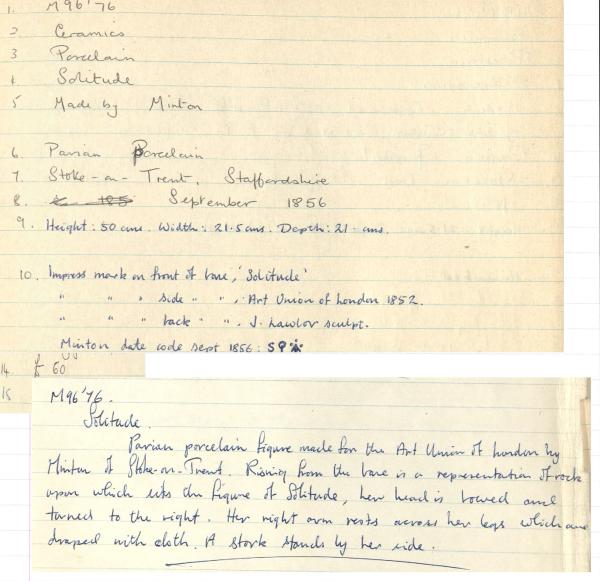 1. M96'76
2 Ceramics
3 Porcelain
4 Solitude
5 Made by Minton
6. Parian Porcelain
7. Stoke-on-Trent, Staffordshire
8. September 1856
9. Height: 50 cms. Width: 21.5 cms. Depth: 21. cms.
10. Impress mark on front of base, 'Solitude'
" " " side " ", Art Union of London 1852.
" " " back " ". J. Lawlor sculpt.
Minton date code sept 1856:
14 £ 60
15
M96'76.
Solitude.
Parian porcelain figure made for the Art Union of London by
Minton of Stoke-on-Trent. Rising from the base is a representation of rock
upon which sits the figure of Solitude, her head is bowed and
turned to the right. Her right arm rests across her legs which are
draped with cloth. A stork stands by her side.